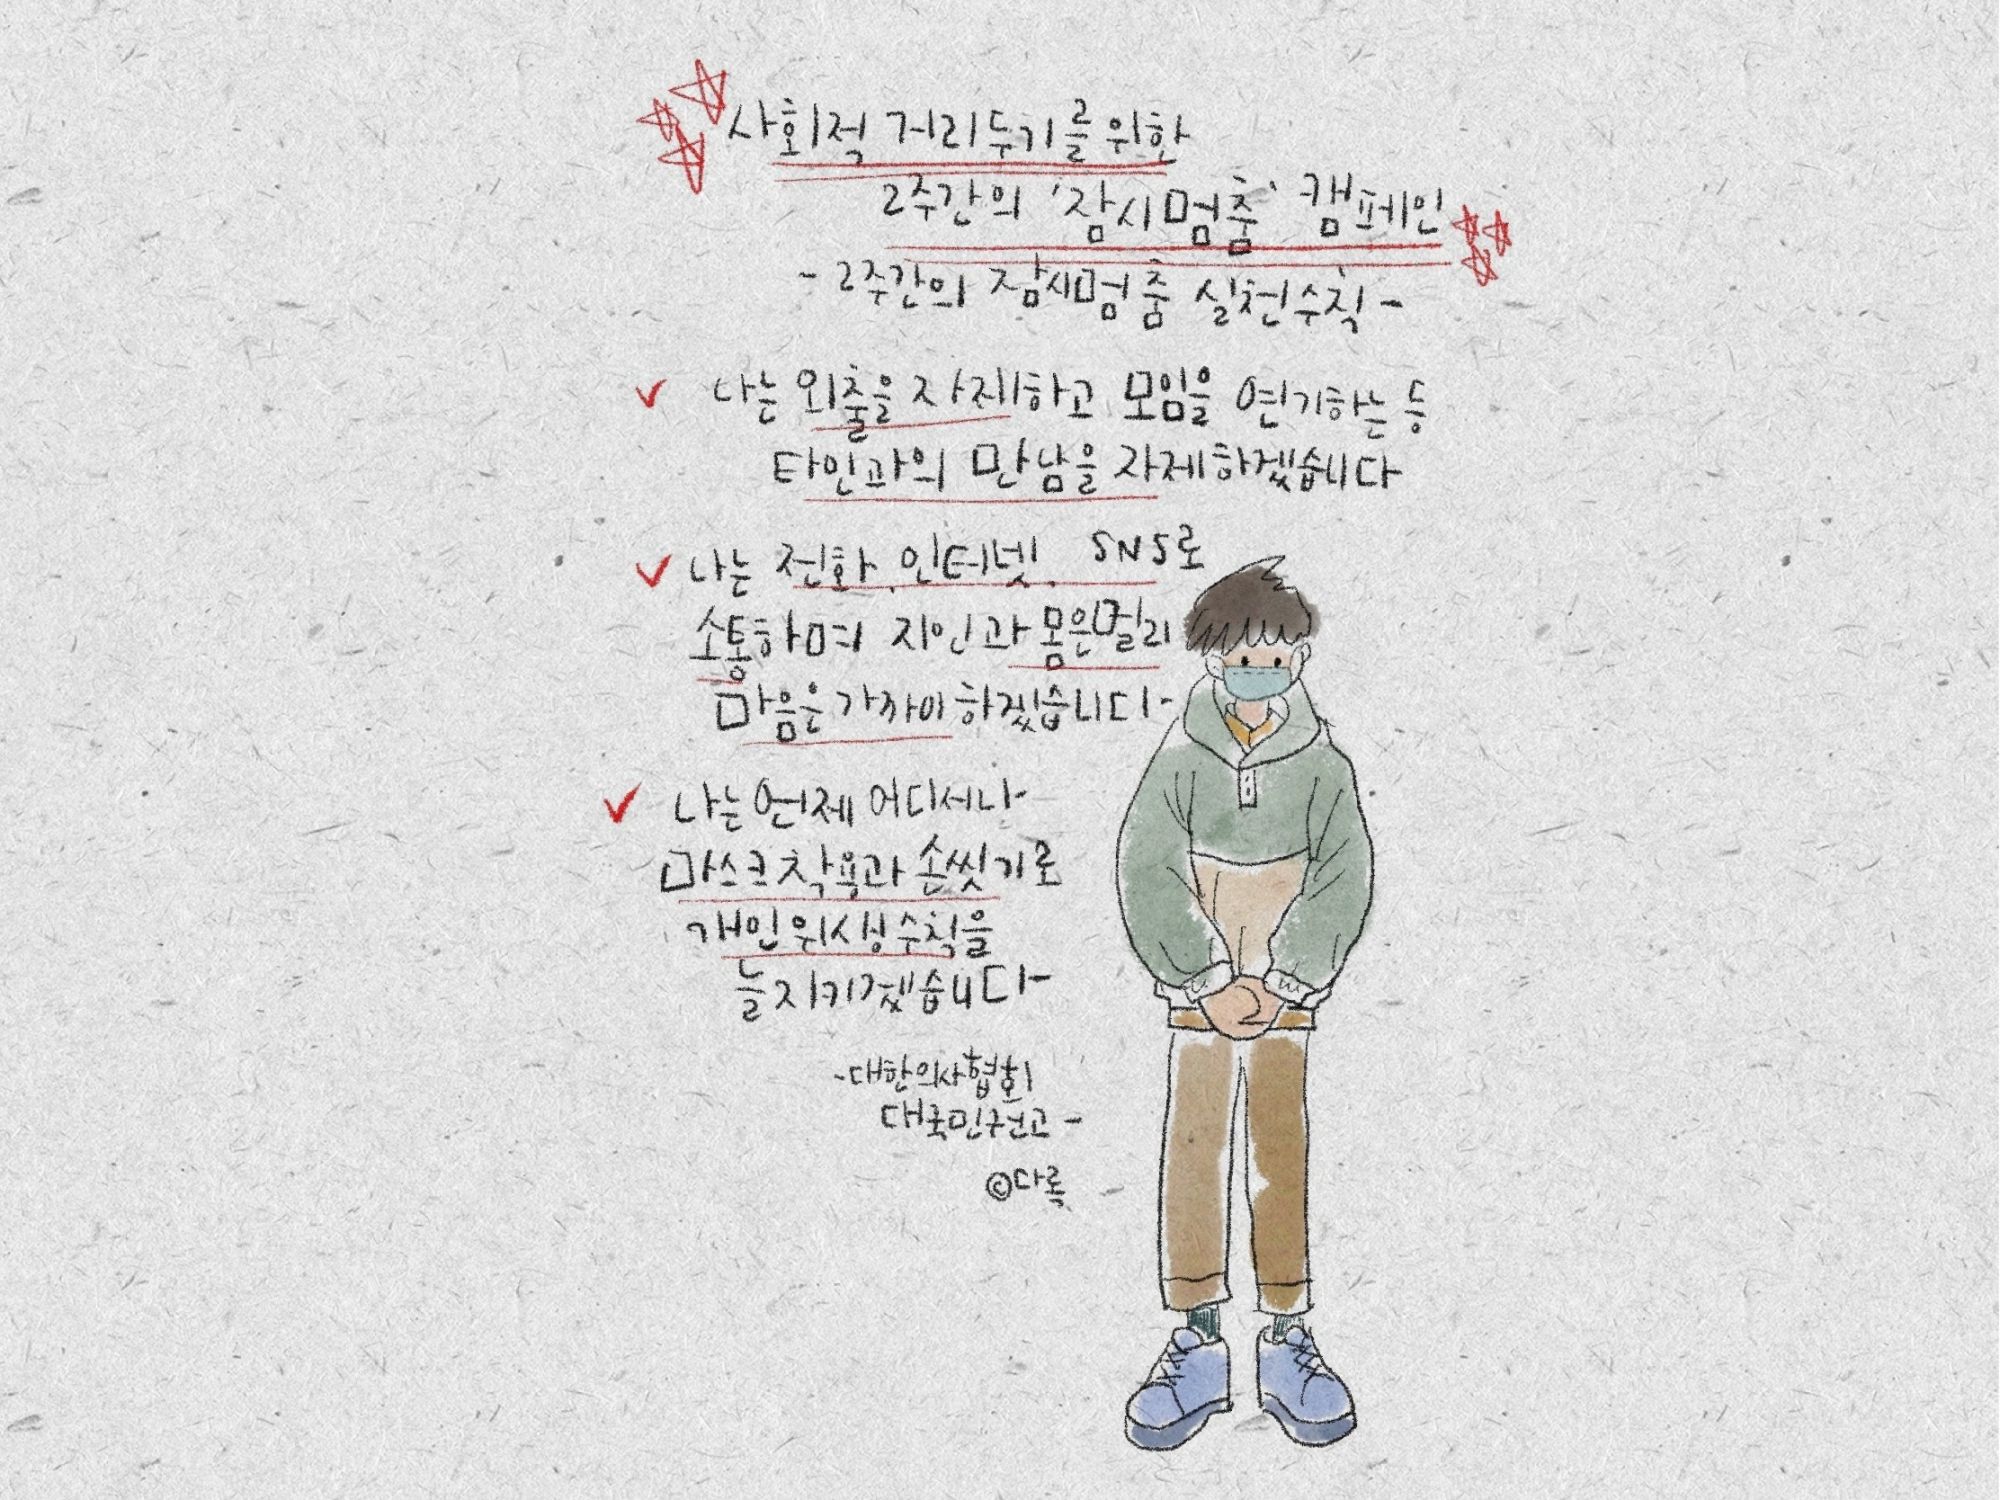 사회적 거리두기를 위한
2주간의 '잠시멈춤' 캠페인
- 2주간의 잠시멈춤 실천수칙 -
나는 외출을 자제하고 모임을 연기하는 등
타인과의 만남을 자제하겠습니다
나는 전화, 인터넷, SNS로
소통하며 지인과 몸은멀리
마음은 가까이 하겠습니다.
나는 언제 어디서나
마스크 착용과 손씻기로
개인위생수칙을
늘 지키겠습니다
-대한의사협회
대국민권고-
©다록